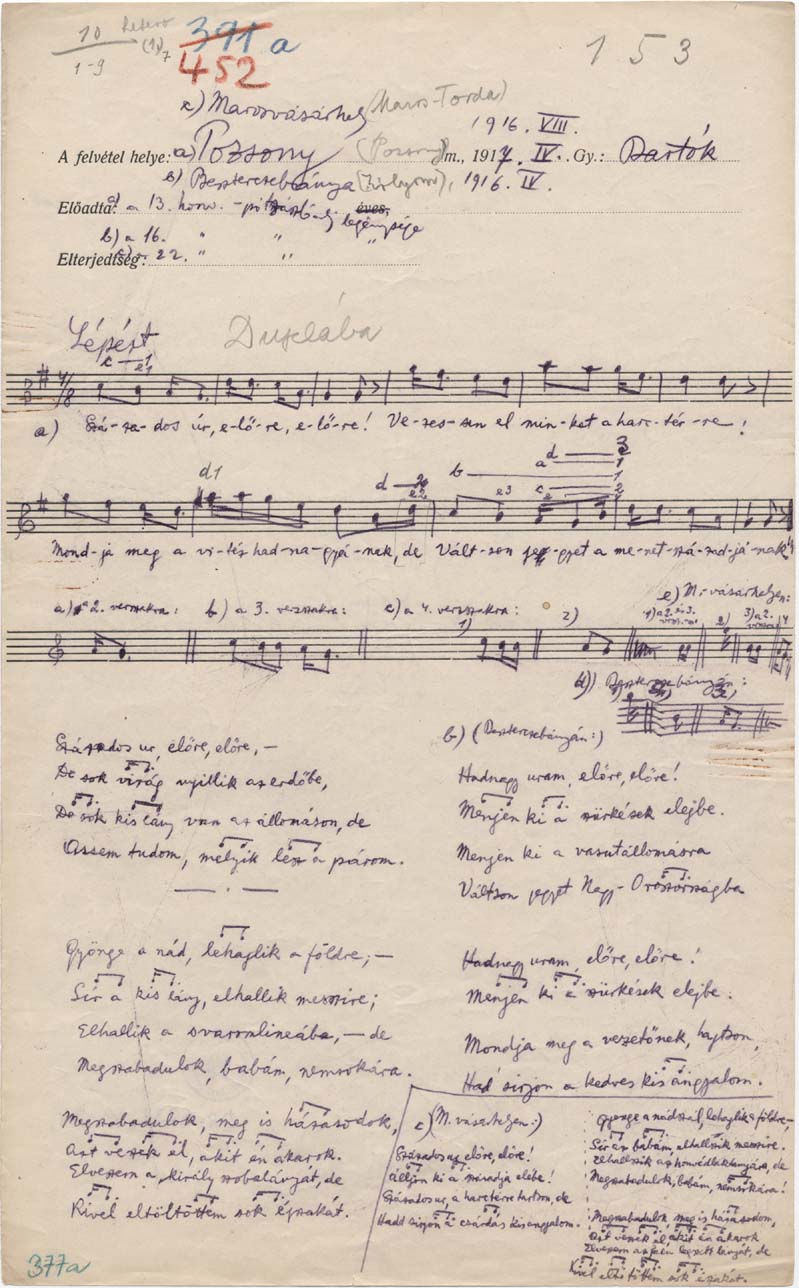 10
1-9
391 a
452
153
c) Marosvásárhely (Maros-Torda)
1916. VIII.
A felvétel helye: a) Pozsony (Pozsony) m., 1917. IV. Gy.: Bartók
b) Besztercebánya (Zólyom), 1916. IV.
Előadta: a) a 13. honv. éves, legénysége
b) a 16. " " "
Elterjedtség: c) a 22. " "
Lépést
Duklába
a) Szá-za-dos úr, e-lő-re, e-lő-re! Ve-zes-sen el min-ket a harc-tér-re!
Mond-ja meg a vi-téz had-na-gyá-nak, de Vált-son jegyet a me-net-szá-zad-já-nak
a) a 2. versszakra: b) a 3. versszakra: c) a 4. versszakra:
e) M.-vásárhelyen:
d) Besztercebányán:
Százados ur, előre, előre, –
De sok virág nyillik az erdőbe,
De sok kis lány van az állomáson, de
Assem tudom, melyik lesz a párom.
Gyönge a nád, lehaglik a földre; –
Sír a kis lány, elhallik messzire;
Elhallik a svaromlineába, – de
Megszabadulok, babám, nemsokára.
Megszabadulok, meg is házasodok,
Azt veszek el, akit én akarok.
Elveszem a király szobalányát, de
Kivel eltöltöttem sok éjszakát.
b) (Besztercebányán:)
Hadnagy uram, előre, előre!
Menjen ki a szürkések elejbe.
Menjen ki a vasutállomásra
Váltson jegyet Nagy-Oroszországba
Hadnagy uram, előre, előre!
Menjen ki a szürkések elejbe.
Mondja meg a vezetőnek, hajtson,
Had sirjon a kedves kis angyalom.
c) (M.vásárhelyen:)
Százados ur, előre, előre!
Álljon ki a századja elébe!
Százados ur, a harctérre tartson, de
Hadd sirjon a csárdás kisangyalom.
Gyenge a nádszál, lehaglik a földre, –
Sír az babám, elhallszik messzire.
Elhallszik a honvédlaktanyára, de
Megszabadulok, babám, nemsokára!
Megszabadulok, meg is házasodom,
Azt veszek el, akit én akarok
Elveszem a falu legszebb lányát, de
Kivel eltöltöttem sok éjszakát.
377a